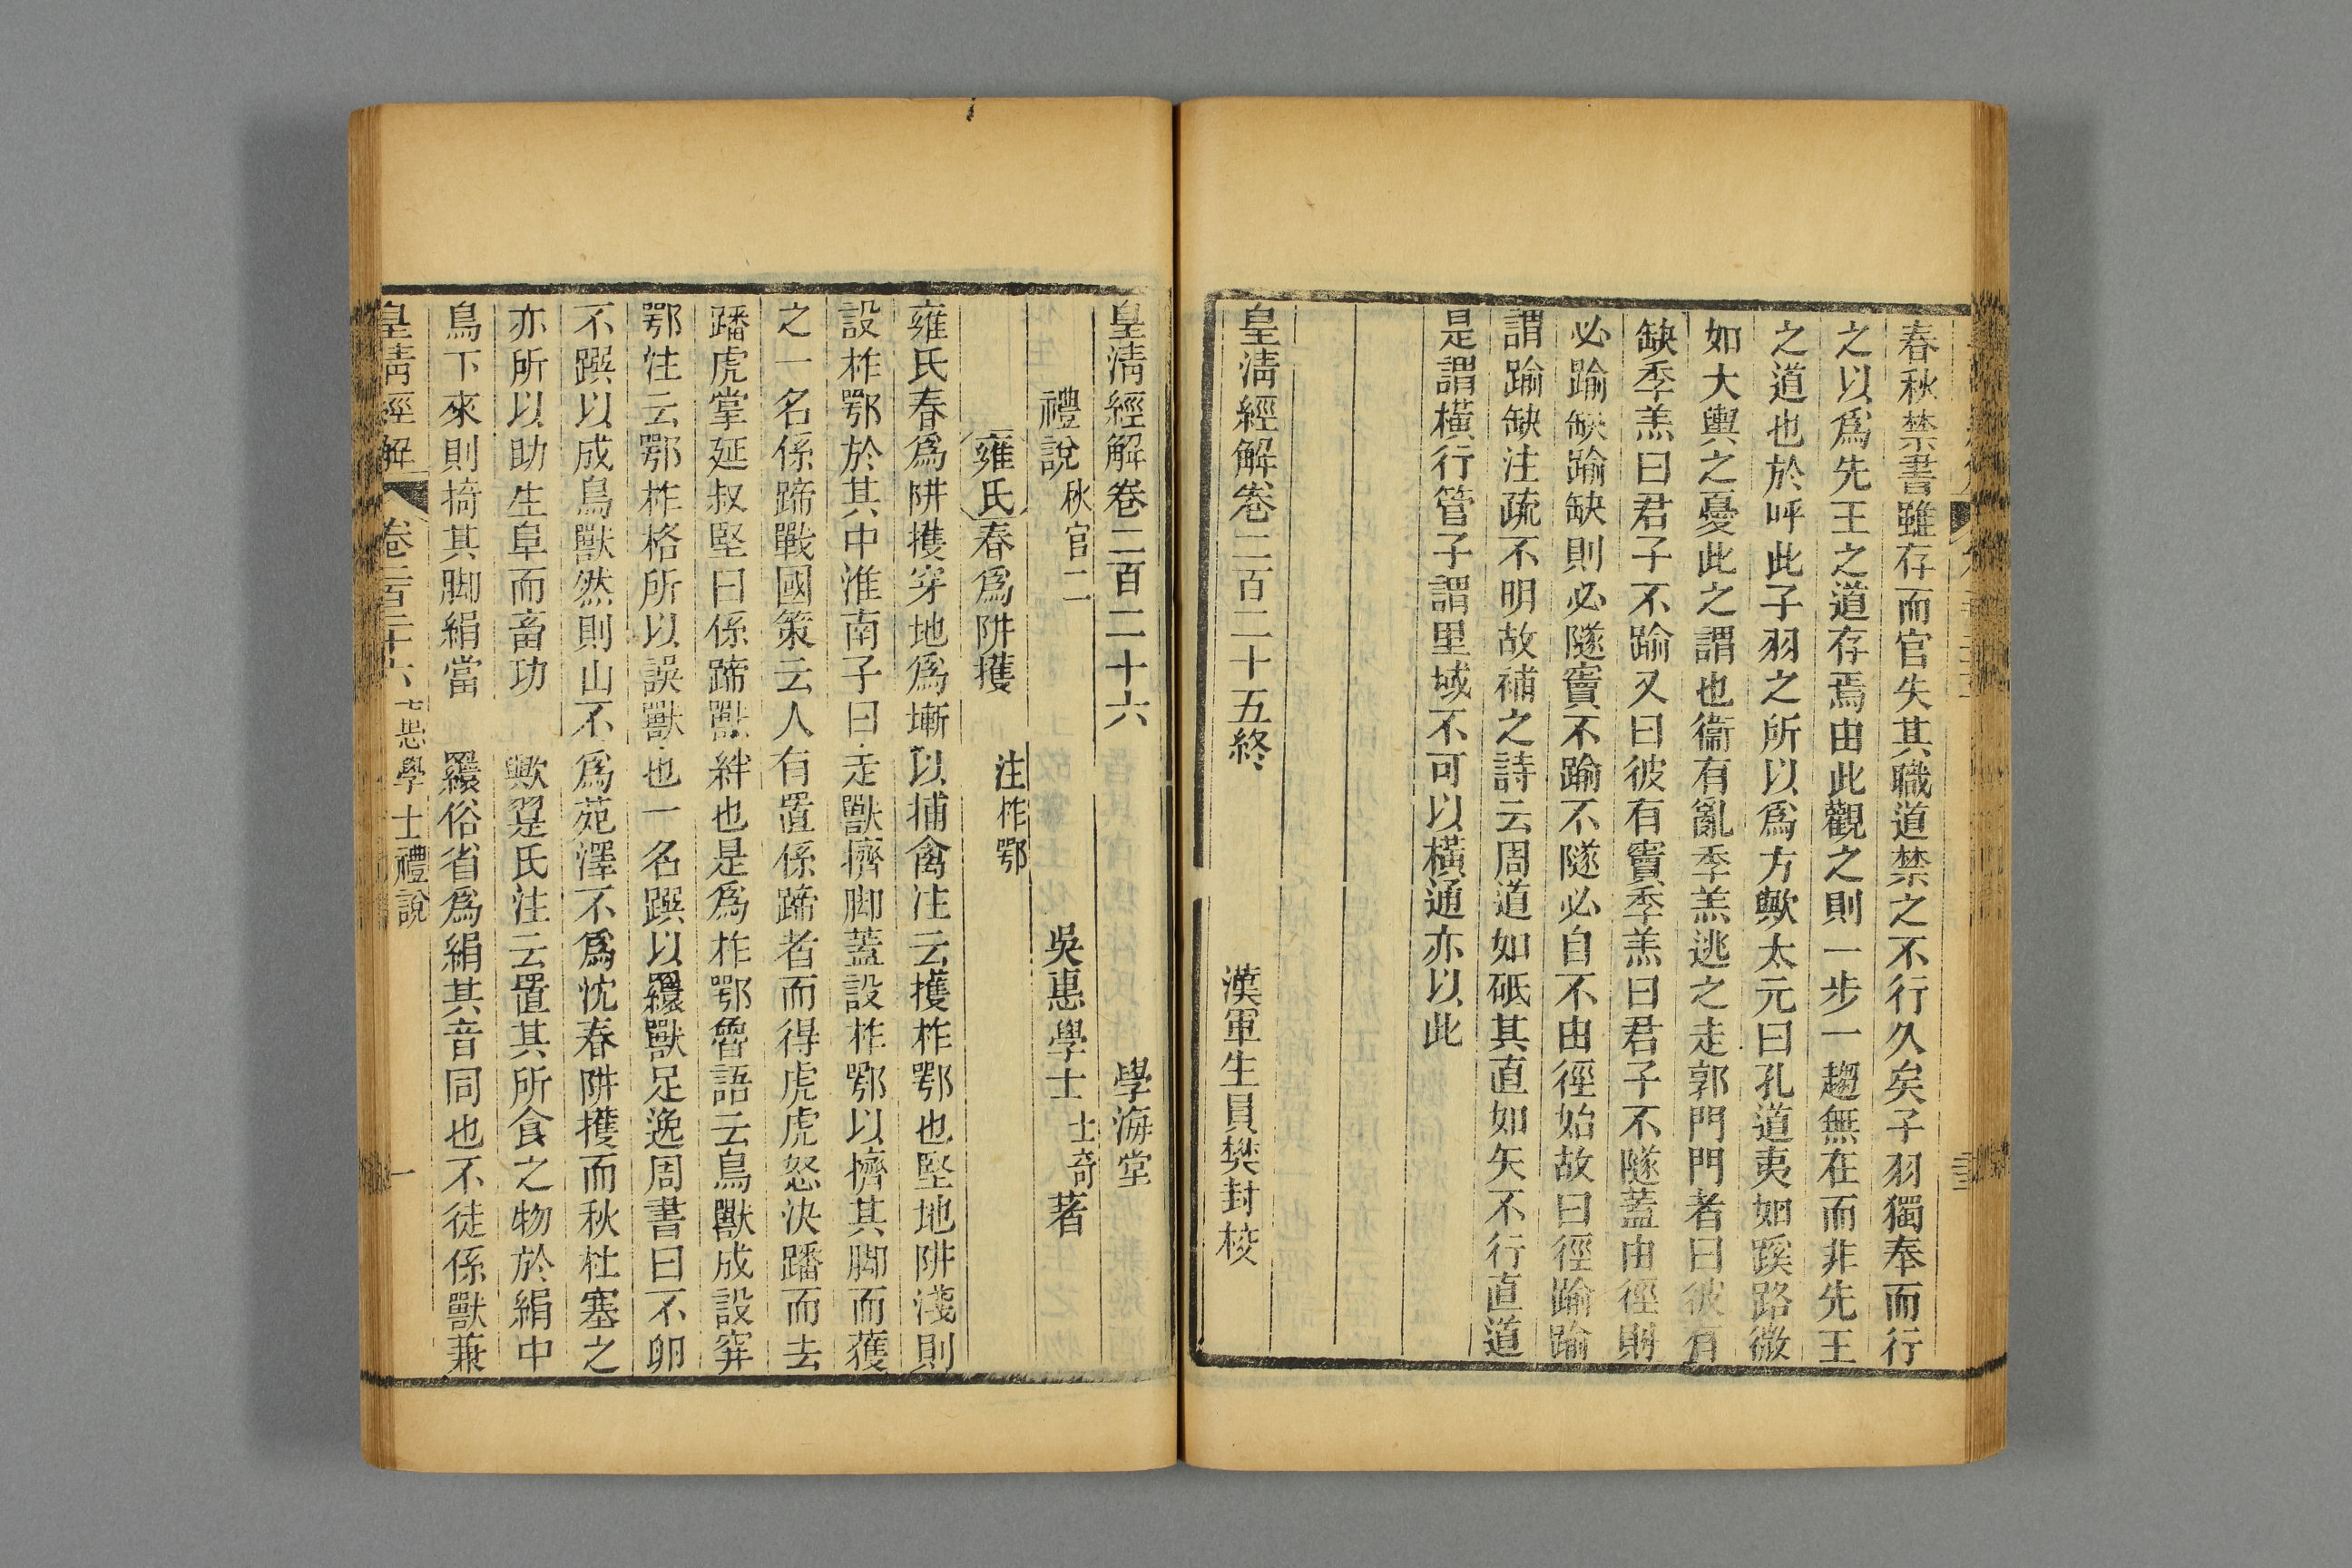 春秋禁書雖存而官失其職道禁之不行久矣子羽獨奉而行
之以爲先王之道存焉由此觀之則一步一趨無在而非先王
之道也於呼此子羽之所以爲方歟太元曰孔道夷如蹊路微
如大輿之憂此之謂也衞有亂季羔逃之走郭門門者曰彼有
缺季羔曰君子不踰又曰彼有竇季羔曰君子不隧蓋由徑則
必踰缺踰缺則必隧竇不踰不隧必自不由徑始故曰徑踰踰
謂踰缺注疏不明故補之詩云周道如砥其直如矢不行直道
是謂橫行管子謂里域不可以橫通亦以此
皇淸經解卷二百二十五終　漢軍生員樊封校
皇淸經解卷二百二十六　學海堂
禮說秋官二　吳惠學士士奇著
雍氏春爲阱擭　注柞鄂
雍氏春爲阱擭穿地爲塹以捕禽注云擭柞鄂也堅地阱淺則
設柞鄂於其中淮南子曰走獸擠脚蓋設柞鄂以擠其脚而獲
之一名係蹄戰國策云人有置係蹄者而得虎虎怒決蹯而去
蹯虎掌延叔堅曰係蹄獸絆也是爲柞鄂魯語云鳥獸成設穽
鄂注云鄂柞格所以誤獸也一名蹼以繯獸足逸周書曰不卵
不蹼以成鳥獸然則山不爲苑澤不爲沈春阱擭而秋杜塞之
亦所以助生阜而畜功歟翨氏注云置其所食之物於絹中
鳥下來則掎其脚絹當爲繯俗省爲絹其音同也不徒係獸兼
皇淸經解　卷二百二十六　惠學士禮說　一